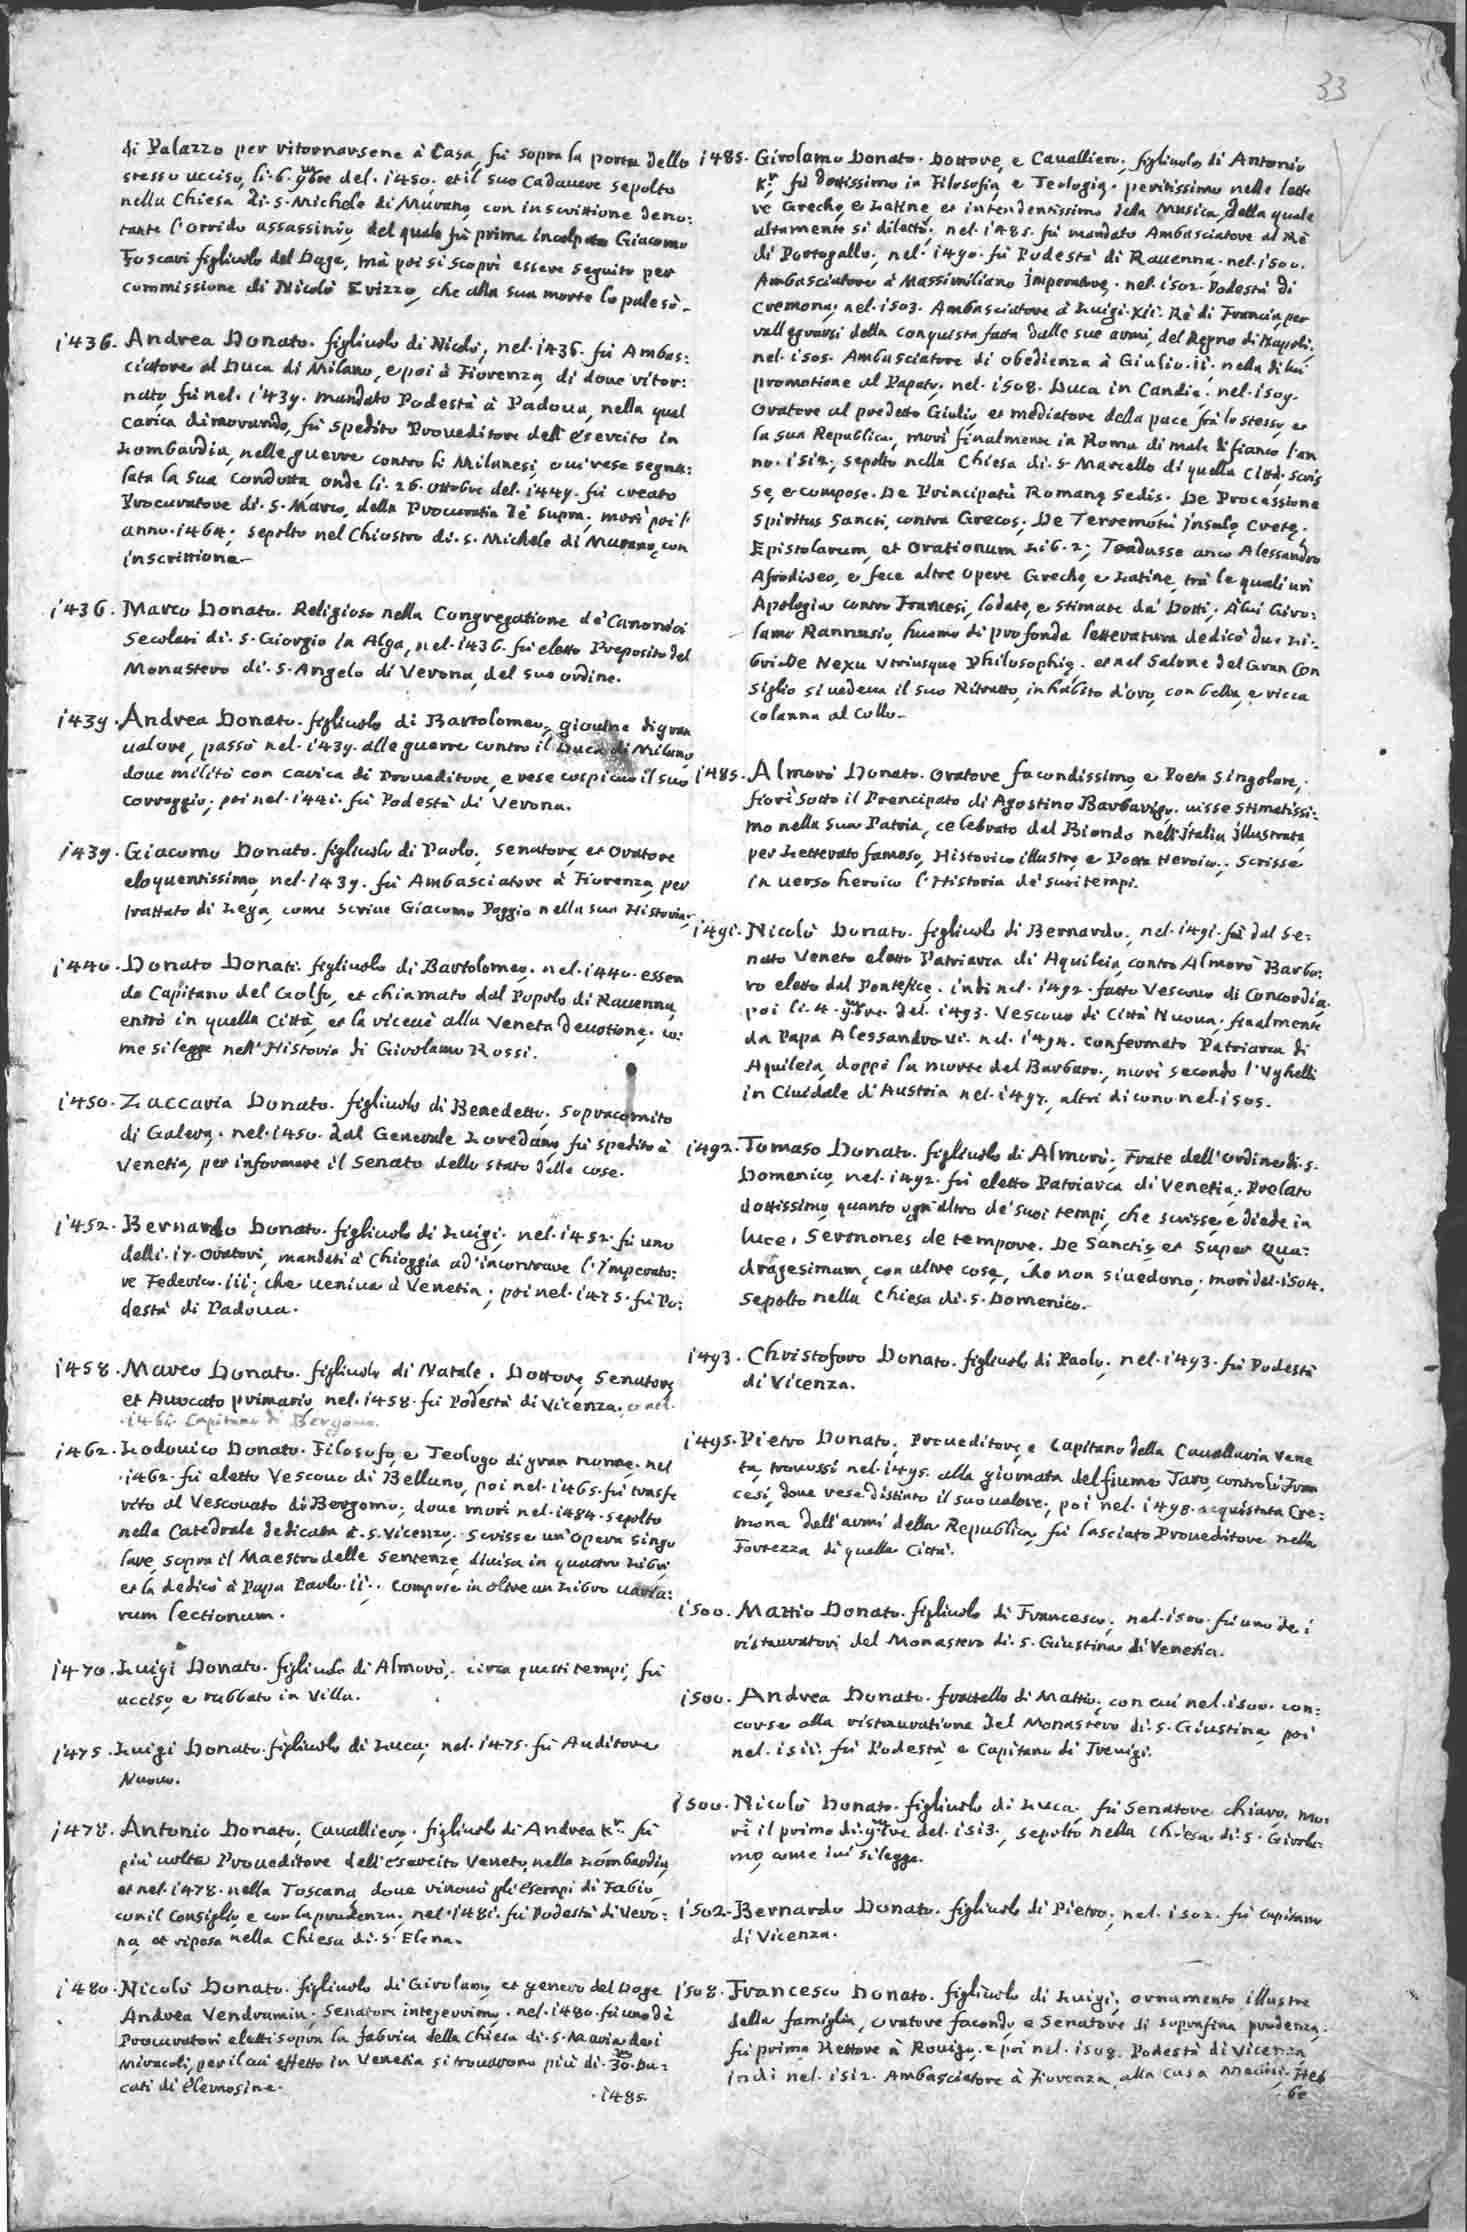 33
di Palazzo per ritornarsene à Casa, fù sopra la porta dello
stesso ucciso, li. 6. 9mbre del. 1450. et il suo Cadavere sepolto
nella Chiesa di. S. Michele di Murano, con inscrittione deno:
tante l'orrido assassinio, del quale fù prima incolpato Giacomo
Foscari figliuolo del Doge, mà poi si scoprì essere seguito per
commissione di Nicolò Erizzo, che alla sua morte lo palesò.
1436. Andrea Donato. figliuolo di Nicolò, nel. 1436. fù Ambas:
ciatore al Duca di Milano, e poi à Fiorenza, di doue ritor:
nato, fù nel. 1439. mandato Podestà à Padoua, nella qual
carica dimorando, fù spedito Proueditore dell'esercito in
Lombardia, nelle guerre contro li Milanesi, oue rese segna:
lata la sua condotta, onde li. 26. ottobre del. 1449. fù creato
Procuratore di. S. Marco, della Procuratia de supra; morì poi l'
anno. 1464; sepolto nel Chiostro di. S. Michele di Murano, con
inscrittione.
1436. Marco Donato. Religioso nella Congregatione de' Canonici
Secolari di. S. Giorgio in Alga, nel. 1436. fù eletto Preposito del
Monastero di. S. Angelo di Verona, del suo ordine.
1439. Andrea Donato. figliuolo di Bartolomeo, giouine di gran
ualore, passò nel. 1439. alle guerre contro il Duca di Milano,
doue militò con carica di Proueditore, e rese cospicuo il suo
corraggio; poi nel. 1441. fù Podestà di Verona.
1439. Giacomo Donato. figliuolo di Paolo, Senatore, et Oratore
eloquentissimo, nel. 1439. fù Ambasciatore à Fiorenza, per
trattato di Lega, come scriue Giacomo Poggio nella sua Historia.
1440. Donato Donati. figliuolo di Bartolomeo, nel. 1440. essen
do Capitano del Golfo, et chiamato dal Popolo di Rauenna,
entrò in quella Città, et la riceuè alla Veneta deuotione, co:
me si legge nell'Historia di Girolamo Rossi.
1450. Zaccaria Donato. figliuolo di Benedetto, Sopracomito
di Galera, nel. 1450. dal Generale Loredano, fù spedito à
Venetia, per informare il Senato dello stato delle cose.
1452. Bernardo Donato. figliuolo di Luigi, nel. 1452. fù uno
delli. 17. Oratori, mandati à Chioggia ad'incontrare l'Imperato:
re Federico. III; che ueniua à Venetia; poi nel. 1475. fù Po:
destà di Padoua.
1458. Marco Donato. figliuolo di Natale, Dottore, Senatore,
et Auuocato primario, nel. 1458. fù Podestà di Vicenza. e nel.
.1464. Capitano di Bergamo.
1462. Lodouico Donato. Filosofo, e Teologo di gran nome, nel
.1462. fù eletto Vescouo di Belluno, poi nel. 1465. fù trasfe
rito al Vescouato di Bergomo; doue morì nel. 1484. sepolto
nella Catedrale dedicata à. S. Vicenzo; scrisse un'Opera singo
lare, sopra il Maestro delle Sentenze, diuisa in quattro Libri,
et la dedicò à Papa Paolo. II. compose in oltre un Libro uaria:
rum lectionum.
1470. Luigi Donato. figliuolo di Almorò, circa questi tempi, fù
ucciso, e rubbato in Villa.
1475. Luigi Donato. figliuolo di Luca, nel. 1475. fù Auditore
Nuouo.
1478. Antonio Donato, Caualliero. figliuolo di Andrea Kr. fù
più uolte Proueditore dell'esercito Veneto, nella Lombardia,
et nel. 1478. nella Toscana, doue rinouò gli esempi di Fabio,
con il Consiglio, e con la prudenza, nel. 1481. fù Podestà di Vero:
na, et riposa nella Chiesa di. S. Elena.
1480. Nicolò Donato. figliuolo di Girolamo, et genero del Doge
Andrea Vendramin; Senatore integerrimo, nel. 1480. fù uno dè
Procuratori eletti sopra la fabrica della Chiesa di. S. Maria de i
Miracoli, per il cui effetto in Venetia si trouarono più di. 30m. Du:
cati di elemosine.
.1485.
1485. Girolamo Donato. Dottore, e Cauálliero, figliuolo di Antonio
Kr. fù dottissimo in Filosofia, e Teologia, peritissimo nelle lette
re Greche, et Latine, et intendentissimo della Musica, della quale
altamente si dilettò; nel. 1485. fù mandato Ambasciatore al Rè
di Portogallo; nel. 1490. fù Podestà di Rauenna. nel. 1500.
Ambasciatore à Massimiliano Imperatore, nel. 1502. Podestà di
Cremona; nel. 1503. Ambasciatore à Luigi. XII. Rè di Francia, per
rallegrarsi della conquista fatta dalle sue armi, del Regno di Napoli;
nel. 1505. Ambasciatore di obedienza à Giulio. II. nella di lui
promotione al Papato, nel. 1508. Duca in Candia. nel. 1509.
Oratore al predetto Giulio, et mediatore della pace frà lo stesso, et
la sua Republica, morì finalmente in Roma di male di fianco l'an
no. 1512; sepolto nella Chiesa di. S. Marcello di quella Città. Scris
se, e compose. De Principatu Romanę Sedis. De Processione
Spiritus Sancti, contra Grecos. De Terremotu Insulę Cretę.
Epistolarum, et Orationum Lib. 2; Tradusse anco Alessandro
Afrodiseo, e fece altre opere Greche, e Latine, trà le quali un'
Apologia contro Francesi, lodate, e stimate da' Dotti; A lui Giro:
lamo Rannusio, huomo di profonda letteratura dedicò due Li:
bri De Nexu Vtriusque Philosophię. et nel Salone del Gran Con
siglio si uedeua il suo Ritratto, in habito d'oro, con bella, e ricca
colanna al collo.
1485. Almorò Donato. Oratore facondissimo, e Poeta singolare,
fiorì sotto il Prencipato di Agostino Barbarigo, uisse stimatissi:
mo nella sua Patria, celebrato dal Biondo nell'Italia illustrata,
per Letterato famoso, Historico illustre, e Poeta Heroico. Scrisse
in uerso heroico l'Historia de' suoi tempi.
1491. Nicolò Donato. figliuolo di Bernardo, nel. 1491. fù dal Se:
nato Veneto eletto Patriarca di Aquileia, contro Almorò Barba:
ro eletto dal Pontefice. indi nel. 1492. fatto Vescouo di Concordia,
poi li. 4. 9mbre. del. 1493. Vescouo di Città Nuoua. finalmente
da Papa Alessandro VI. nel. 1494. confermato Patriarca di
Aquileia, doppo la morte del Barbaro, morì secondo l'Vghelli
in Ciuidale d'Austria nel. 1497, altri dicono nel. 1505.
1492. Tomaso Donato. figliuolo di Almorò, Frate dell'ordine di. S.
Domenico, nel. 1492. fù eletto Patriarca di Venetia. Prelato
dottissimo, quanto ogn'altro de' suoi tempi, che scrisse, e diede in
luce, Sermones de tempore. De Sanctis, et Super Qua:
dragesimam, con altre cose, che non si uedono; morì del. 1504.
Sepolto nella Chiesa di. S. Domenico.
1493. Christoforo Donato. figliuolo di Paolo, nel. 1493. fù Podestà
di Vicenza.
1495. Pietro Donato, Proueditore, e Capitano della Cauallaria Vene
ta, trouossi nel. 1495. alla giornata del fiume Taro, contro li Fran
cesi, doue rese distinto il suo ualore, poi nel. 1498. acquistata Cre:
mona dall'armi della Republica, fù lasciato Proueditore nella
Fortezza di quella Città.
1500. Mattio Donato. figliuolo di Francesco, nel. 1500. fù uno de i
ristauratori del Monastero di. S. Giustina di Venetia.
1500. Andrea Donato. frattello di Mattio, con cui nel. 1500. con:
corse alla ristauratione del Monastero di. S. Giustina, poi
nel. 1511. fù Podestà, e Capitano di Treuigi.
1500. Nicolò Donato. figliuolo di Luca, fù Senatore chiaro, mo:
rì il primo di. 9mbre del. 1513., sepolto nella Chiesa di. S. Girola:
mo, come iui si legge.
1502. Bernardo Donato. figliuolo di Pietro, nel. 1502. fù Capitano
di Vicenza.
1508. Francesco Donato. figliuolo di Luigi, ornamento illustre
della famiglia, Oratore facondo, e Senatore di soprafina prudenza.
fù prima Rettore à Rouigo, e poi nel. 1508. Podestà di Vicenza
indi nel. 1512. Ambasciatore à Fiorenza, alla Casa Medici. Heb
be